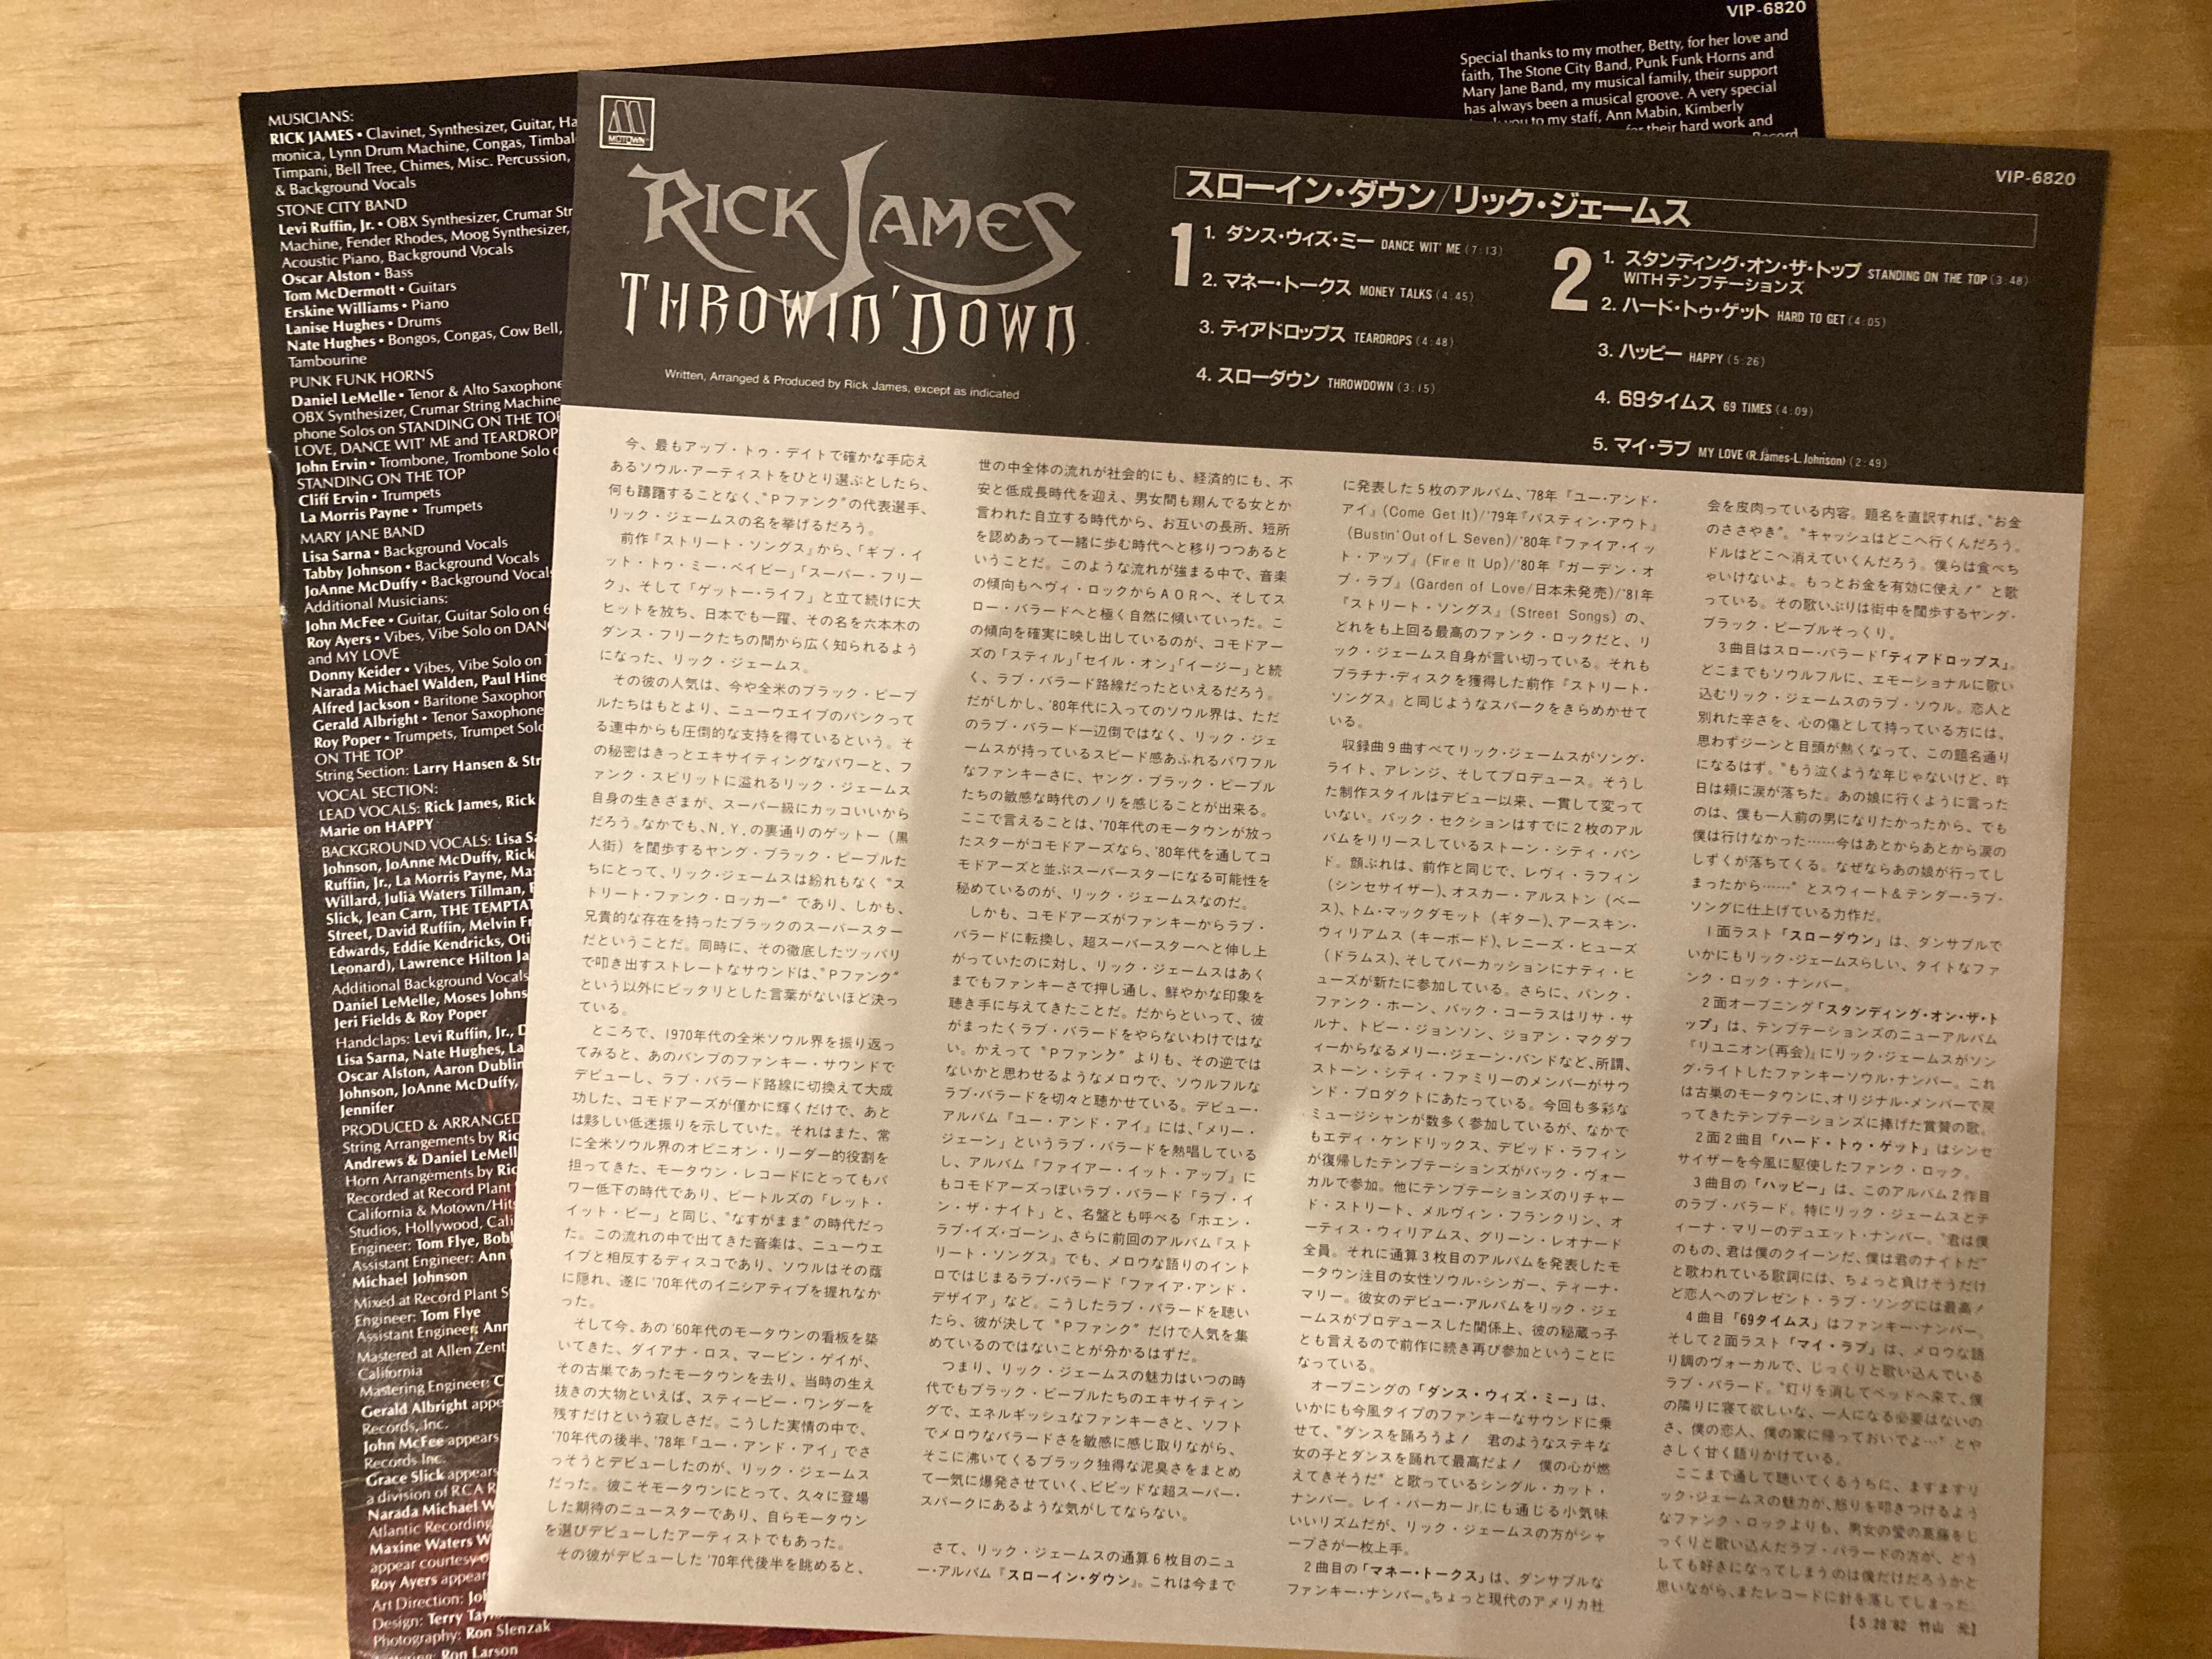 VIP-6820
Special thanks to my mother, Betty, for her love and
faith, The Stone City Band, Punk Funk Horns and
Mary Jane Band, my musical family, their support
has always been a musical groove. A very special
you to my staff, Ann Mabin, Kimberly
for their hard work and
Record
MUSICIANS:
RICK JAMES • Clavinet, Synthesizer, Guitar, Ha
monica, Lynn Drum Machine, Congas, Timbal
Timpani, Bell Tree, Chimes, Misc. Percussion,
& Background Vocals
STONE CITY BAND
Levi Ruffin, Jr. • OBX Synthesizer, Crumar Str
Machine, Fender Rhodes, Moog Synthesizer,
Acoustic Piano, Background Vocals
Oscar Alston • Bass
Tom McDermott • Guitars
Erskine Williams • Piano
Lanise Hughes • Drums
Nate Hughes • Bongos, Congas, Cow Bell,
Tambourine
PUNK FUNK HORNS
Daniel LeMelle • Tenor & Alto Saxophone
OBX Synthesizer, Crumar String Machine
phone Solos on STANDING ON THE TOP
LOVE, DANCE WIT' ME and TEARDROP
John Ervin • Trombone, Trombone Solo o
STANDING ON THE TOP
Cliff Ervin • Trumpets
La Morris Payne • Trumpets
MARY JANE BAND
Lisa Sarna • Background Vocals
Tabby Johnson • Background Vocals
JoAnne McDuffy • Background Vocals
Additional Musicians:
John McFee • Guitar, Guitar Solo on 6
Roy Ayers • Vibes, Vibe Solo on DAN
and MY LOVE
Donny Keider • Vibes, Vibe Solo on
Narada Michael Walden, Paul Hine
Alfred Jackson • Baritone Saxophon
Gerald Albright • Tenor Saxophone
Roy Poper • Trumpets, Trumpet Solo
ON THE TOP
String Section: Larry Hansen & Str
VOCAL SECTION:
LEAD VOCALS: Rick James, Rick
Marie on HAPPY
BACKGROUND VOCALS: Lisa Sa
Johnson, JoAnne McDuffy, Rick
Ruffin, Jr., La Morris Payne, Ma
Willard, Julia Waters Tillman,
Slick, Jean Carn, THE TEMPTAT
Street, David Ruffin, Melvin Fr
Edwards, Eddie Kendricks, Oti
Leonard), Lawrence Hilton Ja
Additional Background Vocals
Daniel LeMelle, Moses Johns
Jeri Fields & Roy Poper
Handclaps: Levi Ruffin, Jr., D
Lisa Sarna, Nate Hughes, La
Oscar Alston, Aaron Dublin
Johnson, JoAnne McDuffy,
Jennifer
PRODUCED & ARRANGED
String Arrangements by Ric
Andrews & Daniel LeMell
Horn Arrangements by Ric
Recorded at Record Plant
California & Motown/Hits
Studios, Hollywood, Cali
Engineer: Tom Flye, Bob
Assistant Engineer: Ann
Michael Johnson
Mixed at Record Plant S
Engineer: Tom Flye
Assistant Engineer: Ann
Mastered at Allen Zent
California
Mastering Engineer: C
Gerald Albright appe
Records, Inc.
John McFee appears
Records Inc.
Grace Slick appears
a division of RCA R
Narada Michael W
Atlantic Recording
Maxine Waters W
appear courtesy o
Roy Ayers appear
Art Direction: Jo
Design: Terry Tay
Photography: Ron Slenzak
Ron Larson
MOTOWN
RICK JAMES
THROWIN' DOWN
Written, Arranged & Produced by Rick James, except as indicated
VIP-6820
スローイン・ダウン/リック・ジェームス
1
1. ダンス・ウィズ・ミー DANCE WIT' ME (7:13)
2. マネー・トークス MONEY TALKS (4:45)
3. ティアドロップス TEARDROPS (4:48)
4. スローダウン THROWDOWN (3:15)
2
1. スタンディング・オン・ザ・トップ STANDING ON THE TOP (3:48)
WITHテンプテーションズ
2. ハード・トゥ・ゲット HARD TO GET (4:05)
3. ハッピー HAPPY (5:26)
4. 69タイムス 69 TIMES (4:09)
5. マイ・ラブ MY LOVE (R.James-L.Johnson) (2:49)
今、最もアップ・トゥ・デイトで確かな手応え
あるソウル・アーティストをひとり選ぶとしたら、
何も躊躇することなく、“Pファンク”の代表選手、
リック・ジェームスの名を挙げるだろう。
前作『ストリート・ソングス』から、「ギブ・イ
ット・トゥ・ミー・ベイビー」「スーパー・フリー
ク」、そして「ゲットー・ライフ」と立て続けに大
ヒットを放ち、日本でも一躍、その名を六本木の
ダンス・フリークたちの間から広く知られるよう
になった、リック・ジェームス。
その彼の人気は、今や全米のブラック・ピープ
ルたちはもとより、ニューウエイブのパンクって
る連中からも圧倒的な支持を得ているという。そ
の秘密はきっとエキサイティングなパワーと、フ
ァンク・スピリットに溢れるリック・ジェームス
自身の生きざまが、スーパー級にカッコいいから
だろう。なかでも、N.Y.の裏通りのゲットー（黒
人街）を闊歩するヤング・ブラック・ピープルた
ちにとって、リック・ジェームスは紛れもなく“ス
トリート・ファンク・ロッカー”であり、しかも、
兄貴的な存在を持ったブラックのスーパースター
だということだ。同時に、その徹底したツッパリ
で叩き出すストレートなサウンドは、“Pファンク”
という以外にピッタリとした言葉がないほど決っ
ている。
ところで、1970年代の全米ソウル界を振り返っ
てみると、あのバンプのファンキー・サウンドで
デビューし、ラブ・バラード路線に切換えて大成
功した、コモドアーズが僅かに輝くだけで、あと
は夥しい低迷振りを示していた。それはまた、常
に全米ソウル界のオピニオン・リーダー的役割を
担ってきた、モータウン・レコードにとってもパ
ワー低下の時代であり、ビートルズの「レット・
イット・ビー」と同じ、“なすがまま”の時代だっ
た。この流れの中で出てきた音楽は、ニューウエ
イブと相反するディスコであり、ソウルはその蔭
に隠れ、遂に'70年代のイニシアティブを握れなか
った。
そして今、あの'60年代のモータウンの看板を築
いてきた、ダイアナ・ロス、マービン・ゲイが、
その古巣であったモータウンを去り、当時の生え
抜きの大物といえば、スティービー・ワンダーを
残すだけという寂しさだ。こうした実情の中で、
'70年代の後半、'78年「ユー・アンド・アイ」でさ
っそうとデビューしたのが、リック・ジェームス
だった。彼こそモータウンにとって、久々に登場
した期待のニュースターであり、自らモータウン
を選びデビューしたアーティストでもあった。
その彼がデビューした'70年代後半を眺めると、
世の中全体の流れが社会的にも、経済的にも、不
安と低成長時代を迎え、男女間も翔んでる女とか
言われた自立する時代から、お互いの長所、短所
を認めあって一緒に歩む時代へと移りつつあると
いうことだ。このような流れが強まる中で、音楽
の傾向もヘヴィ・ロックからAORへ、そしてス
ロー・バラードへと極く自然に傾いていった。こ
の傾向を確実に映し出しているのが、コモドアー
ズの「スティル」「セイル・オン」「イージー」と続
く、ラブ・バラード路線だったといえるだろう。
だがしかし、'80年代に入ってのソウル界は、ただ
のラブ・バラード一辺倒ではなく、リック・ジェ
ームスが持っているスピード感あふれるパワフル
なファンキーさに、ヤング・ブラック・ピープル
たちの敏感な時代のノリを感じることが出来る。
ここで言えることは、'70年代のモータウンが放っ
たスターがコモドアーズなら、'80年代を通してコ
モドアーズと並ぶスーパースターになる可能性を
秘めているのが、リック・ジェームスなのだ。
しかも、コモドアーズがファンキーからラブ・
バラードに転換し、超スーパースターへと伸し上
がっていたのに対し、リック・ジェームスはあく
までもファンキーさで押し通し、鮮やかな印象を
聴き手に与えてきたことだ。だからといって、彼
がまったくラブ・バラードをやらないわけではな
い。かえって“Pファンク”よりも、その逆では
ないかと思わせるようなメロウで、ソウルフルな
ラブ・バラードを切々と聴かせている。デビュー・
アルバム『ユー・アンド・アイ』には、「メリー・
ジェーン」というラブ・バラードを熱唱している
し、アルバム『ファイアー・イット・アップ』に
もコモドアーズっぽいラブ・バラード「ラブ・イ
ン・ザ・ナイト」と、名盤とも呼べる「ホエン・
ラブ・イズ・ゴーン」、さらに前回のアルバム『スト
リート・ソングス』でも、メロウな語りのイント
ロではじまるラブ・バラード「ファイア・アンド・
デザイア」など。こうしたラブ・バラードを聴い
たら、彼が決して“Pファンク”だけで人気を集
めているのではないことが分かるはずだ。
つまり、リック・ジェームスの魅力はいつの時
代でもブラック・ピープルたちのエキサイティン
グで、エネルギッシュなファンキーさと、ソフト
でメロウなバラードさを敏感に感じ取りながら、
そこに沸いてくるブラック独得な泥臭さをまとめ
て一気に爆発させていく、ビビッドな超スーパー・
スパークにあるような気がしてならない。
さて、リック・ジェームスの通算6枚目のニュ
ー・アルバム『スローイン・ダウン』。これは今まで
に発表した5枚のアルバム、'78年『ユー・アンド・
アイ』(Come Get It)/'79年『バスティン・アウト』
(Bustin' Out of L Seven)/'80年『ファイア・イッ
ト・アップ』(Fire It Up)/'80年『ガーデン・オ
ブ・ラブ』(Garden of Love/日本未発売)/'81年
『ストリート・ソングス』(Street Songs)の、
どれをも上回る最高のファンク・ロックだと、リ
ック・ジェームス自身が言い切っている。それも
プラチナ・ディスクを獲得した前作『ストリート・
ソングス』と同じようなスパークをきらめかせて
いる。
収録曲9曲すべてリック・ジェームスがソング・
ライト、アレンジ、そしてプロデュース。そうし
た制作スタイルはデビュー以来、一貫して変って
いない。バック・セクションはすでに2枚のアル
バムをリリースしているストーン・シティ・バン
ド。顔ぶれは、前作と同じで、レヴィ・ラフィン
（シンセサイザー）、オスカー・アルストン（ベー
ス）、トム・マックダモット（ギター）、アースキン・
ウィリアムス（キーボード）、レニーズ・ヒューズ
（ドラムス）、そしてパーカッションにナティ・ヒ
ューズが新たに参加している。さらに、パンク・
ファンク・ホーン、バック・コーラスはリサ・サ
ルナ、トビー・ジョンソン、ジョアン・マクダフ
ィーからなるメリー・ジェーン・バンドなど、所謂、
ストーン・シティ・ファミリーのメンバーがサウ
ンド・プロダクトにあたっている。今回も多彩な
ミュージシャンが数多く参加しているが、なかで
もエディ・ケンドリックス、デビッド・ラフィン
が復帰したテンプテーションズがバック・ヴォー
カルで参加。他にテンプテーションズのリチャー
ド・ストリート、メルヴィン・フランクリン、オ
ーティス・ウィリアムス、グリーン・レオナード
全員。それに通算3枚目のアルバムを発表したモ
ータウン注目の女性ソウル・シンガー、ティーナ・
マリー。彼女のデビュー・アルバムをリック・ジェ
ームスがプロデュースした関係上、彼の秘蔵っ子
とも言えるので前作に続き再び参加ということに
なっている。
オープニングの「ダンス・ウィズ・ミー」は、
いかにも今風タイプのファンキーなサウンドに乗
せて、“ダンスを踊ろうよ！ 君のようなステキな
女の子とダンスを踊れて最高だよ！ 僕の心が燃
えてきそうだ”と歌っているシングル・カット・
ナンバー。レイ・パーカーJr.にも通じる小気味
いいリズムだが、リック・ジェームスの方がシャ
ープさが一枚上手。
2曲目の「マネー・トークス」は、ダンサブルな
ファンキー・ナンバー。ちょっと現代のアメリカ社
会を皮肉っている内容。題名を直訳すれば、“お金
のささやき”。“キャッシュはどこへ行くんだろう。
ドルはどこへ消えていくんだろう。僕らは食べち
ゃいけないよ。もっとお金を有効に使え！”と歌
っている。その歌いぶりは街中を闊歩するヤング・
ブラック・ピープルそっくり。
3曲目はスロー・バラード「ティアドロップス」。
どこまでもソウルフルに、エモーショナルに歌い
込むリック・ジェームスのラブ・ソウル。恋人と
別れた辛さを、心の傷として持っている方には、
思わずジーンと目頭が熱くなって、この題名通り
になるはず。“もう泣くような年じゃないけど、昨
日は頬に涙が落ちた。あの娘に行くように言った
のは、僕も一人前の男になりたかったから、でも
僕は行けなかった……今はあとからあとから涙の
しずくが落ちてくる。なぜならあの娘が行ってし
まったから……”とスウィート＆テンダー・ラブ・
ソングに仕上げている力作だ。
1面ラスト「スローダウン」は、ダンサブルで
いかにもリック・ジェームスらしい、タイトなファ
ンク・ロック・ナンバー。
2面オープニング「スタンディング・オン・ザ・ト
ップ」は、テンプテーションズのニューアルバム
『リユニオン(再会)』にリック・ジェームスがソン
グ・ライトしたファンキーソウル・ナンバー。これ
は古巣のモータウンに、オリジナル・メンバーで戻
ってきたテンプテーションズに捧げた賞賛の歌。
2面2曲目「ハード・トゥ・ゲット」はシンセ
サイザーを今風に駆使したファンク・ロック。
3曲目の「ハッピー」は、このアルバム2作目
のラブ・バラード。特にリック・ジェームスとテ
ィーナ・マリーのデュエット・ナンバー。“君は僕
のもの、君は僕のクイーンだ、僕は君のナイトだ”
と歌われている歌詞には、ちょっと負けそうだけ
ど恋人へのプレゼント・ラブ・ソングには最高！
4曲目「69タイムス」はファンキー・ナンバー。
そして2面ラスト「マイ・ラブ」は、メロウな語
り調のヴォーカルで、じっくりと歌い込んでいる
ラブ・バラード。“灯りを消してベッドへ来て、僕
の隣りに寝て欲しいな、一人になる必要はないの
さ、僕の恋人、僕の家に帰っておいでよ…”とや
さしく甘く語りかけている。
ここまで通して聴いてくるうちに、ますますリ
ック・ジェームスの魅力が、怒りを叩きつけるよう
なファンク・ロックよりも、男女の愛の葛藤をじ
っくりと歌い込んだラブ・バラードの方が、どう
しても好きになってしまうのは僕だけだろうかと
思いながら、またレコードに針を落してしまった。
【5.28 '82 竹山